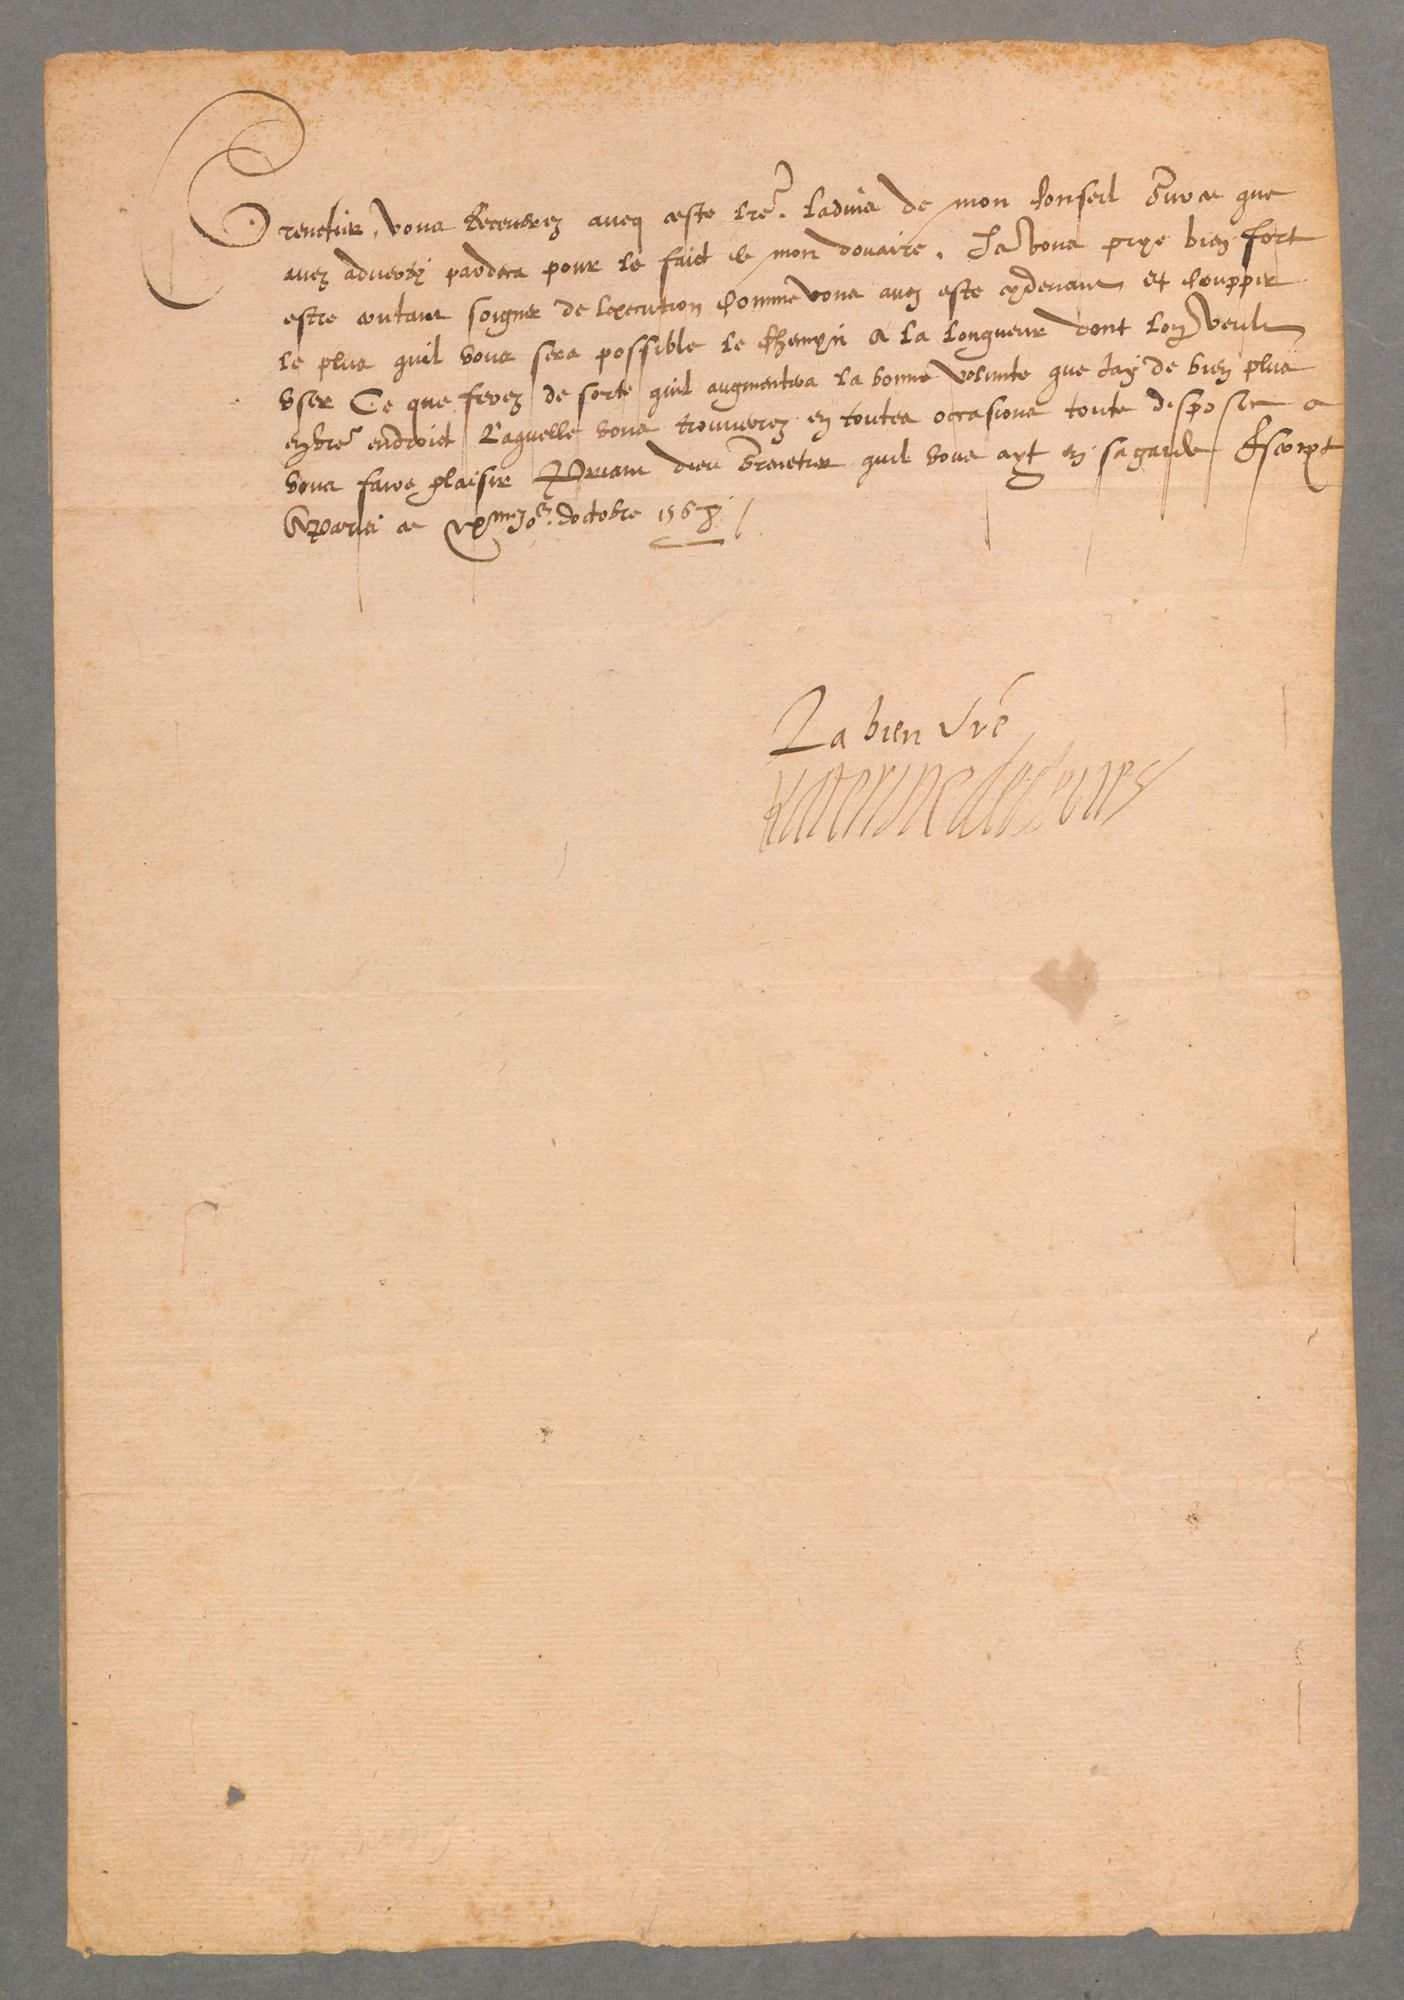 Grenetier, vous Recevrez aveq ceste lrē. ladvis de mon Conseil Sur ce que
avez adverty pardeca pour le faict de mon douaire. Je vous prye bien fort
estre autant soigneux de lexecution Comme vous avez este cydevant et Coupper
le plus quil vous sera possible le Chemyn a la longueur dont lon veult
user Ce que ferez de sorte quil augmentera la bonne volunte que Jay de bien plus
en vrē endroict Laquelle vous trouverez en toutes occasions toute disposee a
vous faire plaisir Priant dieu Grenetier quil vous ayt en sa garde Escript
A Paris ce jor. doctobre 1568
La bien vrē
Katerine de cleves